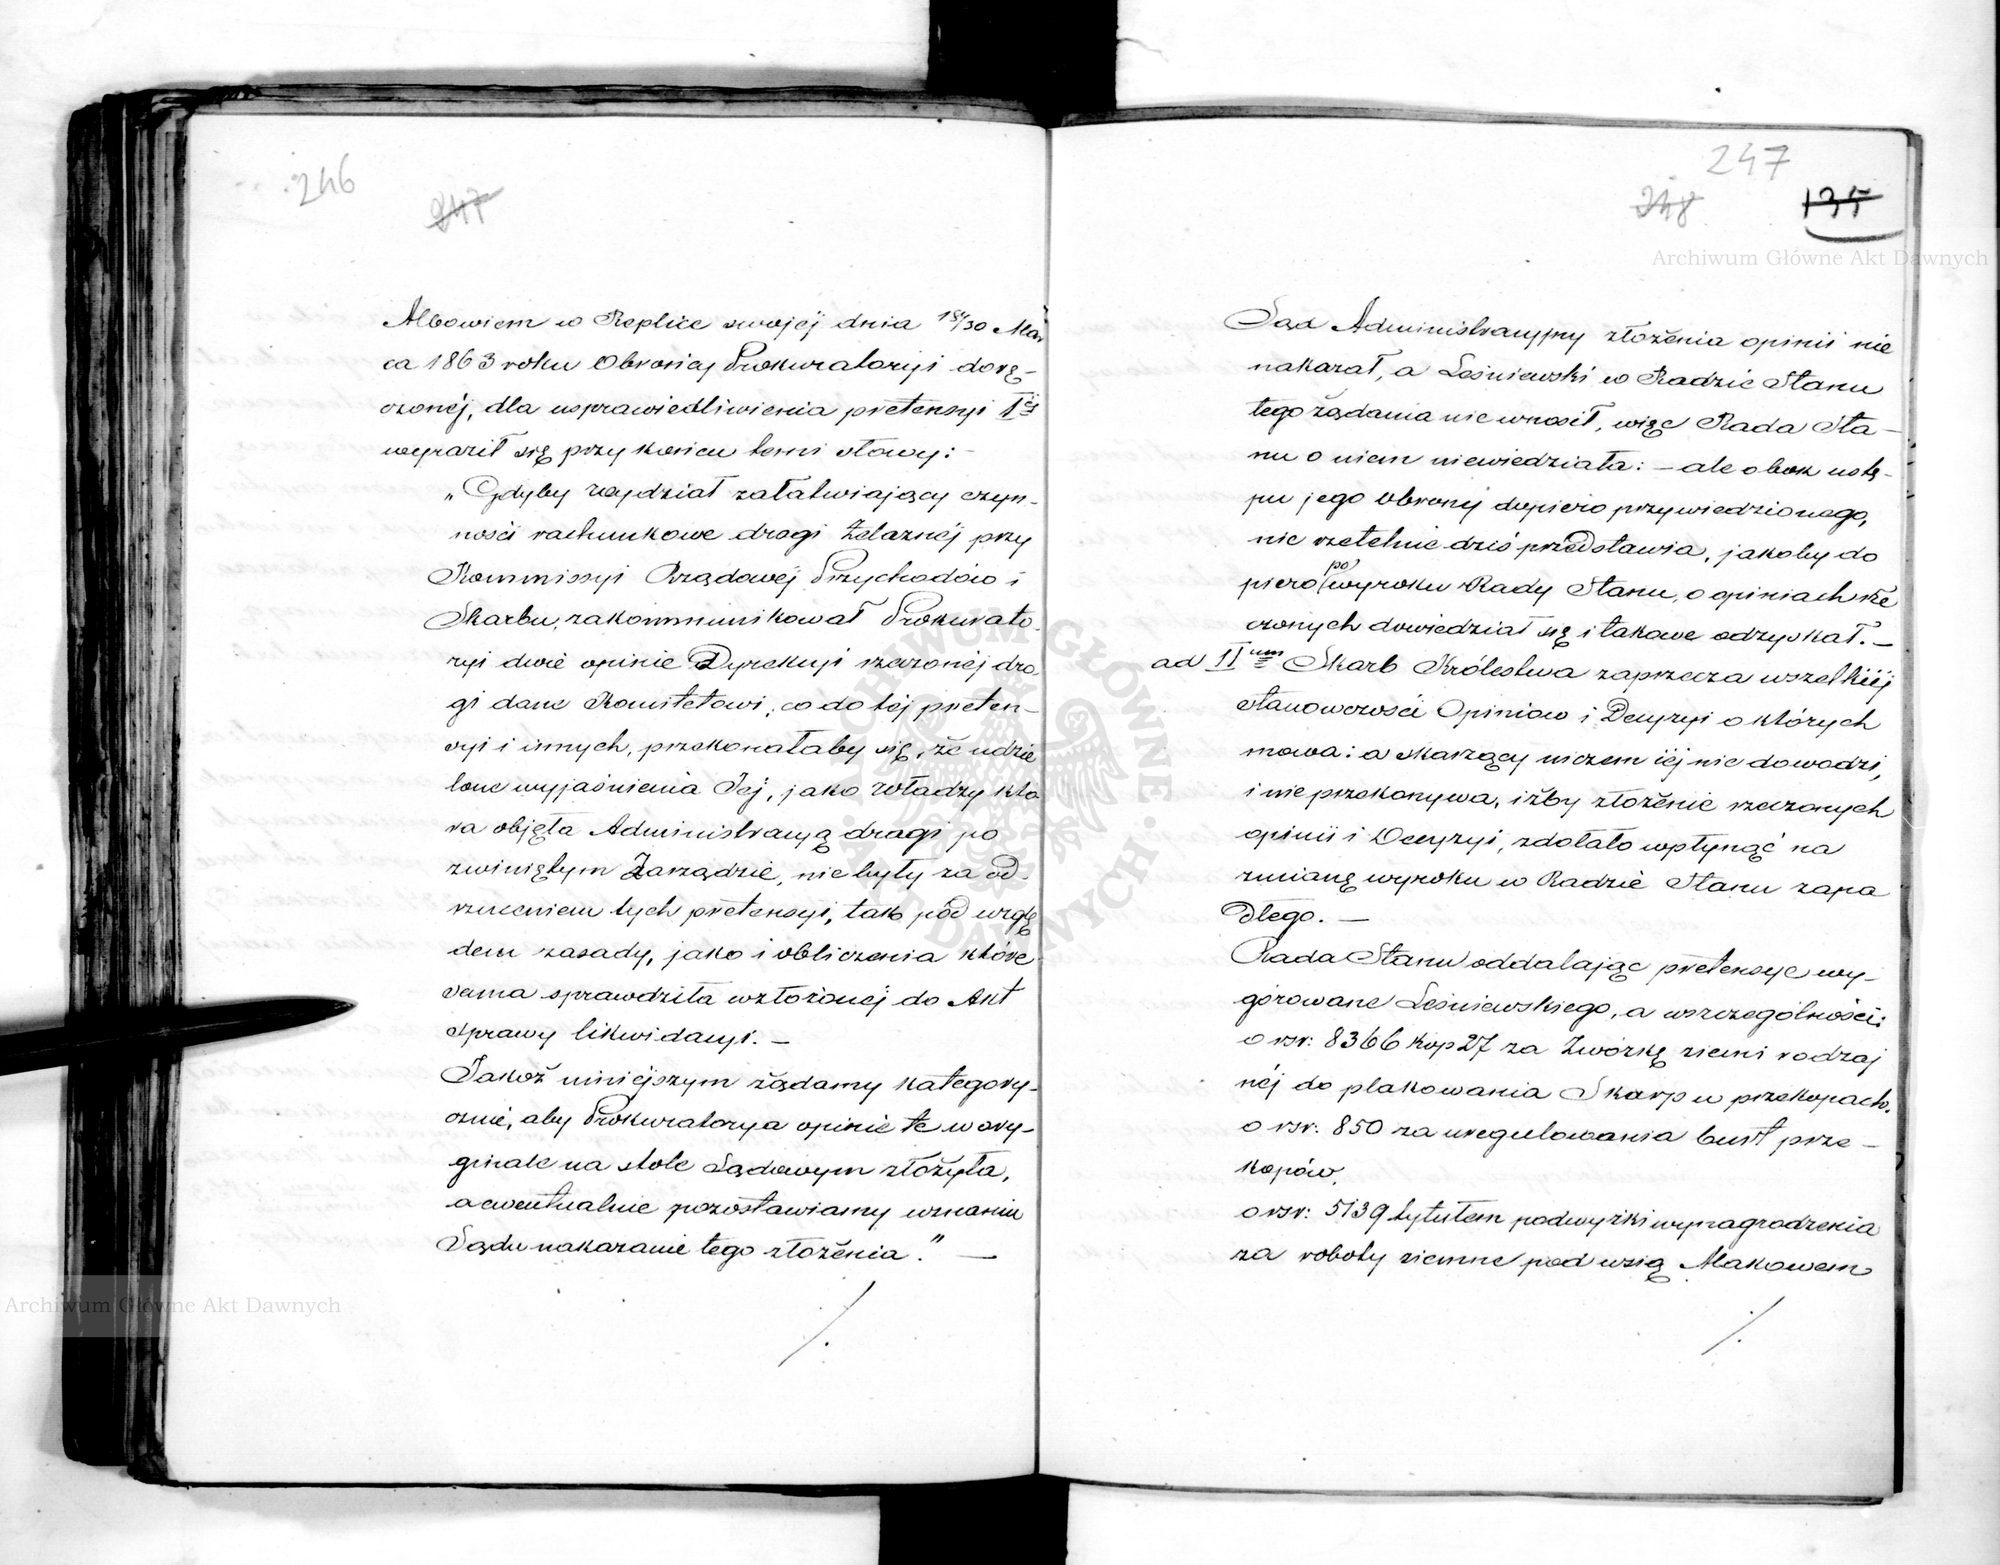 246
247
Albowiem w Replice swojéj dnia 18/30 Mar
ca 1863 roku Obrońcy Prokuratoryi dorę-
czonéj, dla usprawiedliwienia pretensyi Iéj
wyraził się przy końcu temi słowy:
„Gdyby wydział załatwiający czyn-
ności rachunkowe drogi żelaznéj przy
Kommissyi Rządowéj Przychodów i
Skarbu, zakommunikował Prokurato-
ryi dwie opinie Dyrekcyi rzeczonéj dro-
gi dane Komitetowi, co do téj preten-
syi i innych, przekonałaby się, że udzie
lone wyjaśnienia Jéj, jako Władzy któ
ra objęła Administracyą drogi po
zwiniętym Zarządzie, nie były za od-
rzuceniem tych pretensyi, tak pod wzglę
dem zasady, jako i obliczenia które
sama sprawdziła w złożonéj do Akt
sprawy likwidacyi. —
Jakoż niniéjszym żądamy kategory-
cznie, aby Prokuratorya opinie te w ory-
ginale na stole Sądowym złożyła,
a ewentualnie pozostawiamy uznaniu
Sądu nakazanie tego złożenia." —
/.
247
248
135
Archiwum Główne Akt Dawnych
Sąd Administracyjny złożenia opinii nie
nakazał, a Leśniewski w Radzie Stanu
tego żądania nie wnosił, więc Rada Sta-
nu o niem niewiedziała: — ale obok ustę-
pu jego Obrony dopiero przywiedzionego,
nie rzetelnie dziś przedstawia, jakoby do
piero po wyroku Rady Stanu, o opiniach rze
czonych dowiedział się i takowe odzyskał. —
ad IIum Skarb Królestwa zaprzecza wszelkiéj
stanowczości Opiniow i Decyzyi o których
mowa: a skarżący niczem iéj nie dowodzi,
i nie przekonywa, iżby złożenie rzeczonych
opinii i Decyzyi, zdołało wpłynąć na
zmianę wyroku w Radzie Stanu zapa
dłego. —
Rada Stanu oddalając pretensye wy-
górowane Leśniewskiego, a wszczególności:
o rsr: 8366 kop 27 za Zwózkę ziemi rodzaj
néj do plakowania Skarp w przekopach.
o rsr: 850 za uregulowania burt prze-
kopów,
o rsr: 5139 tytułem podwyżki wynagrodzenia
za roboty ziemne pod wsią Makowem
/.
Archiwum Główne Akt Dawnych
ARCHIWUM GŁÓWNE AKT DAWNYCH